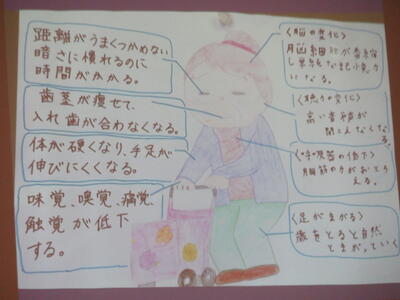 距離がうまくつかめない
暗さに慣れるのに
時間がかかる。
歯茎が痩せて、
入れ歯が合わなくなる。
体が硬くなり、手足が
伸びにくくなる。
味覚、嗅覚、痛覚、
触覚が低下
する。
〈脳の変化〉
脳細胞が
なる。
〈聴力の変化〉
高い音や声が
聞こえなくなる。
〈呼吸器の低下〉
胸筋の力がおとろ
える。
〈足がまがる〉
歳をとると自然
とまがっていく